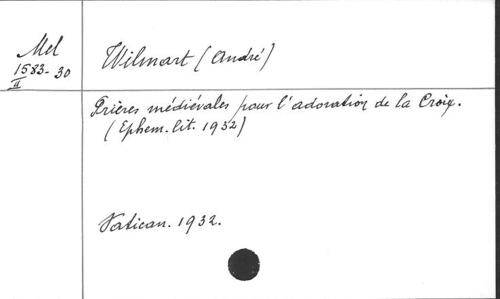 Mel
1583-30
II
Wilmart (André)
Prières médiévales pour l'adoration de la Croix.
(Ephem. lit. 1932)
Vatican. 1932.